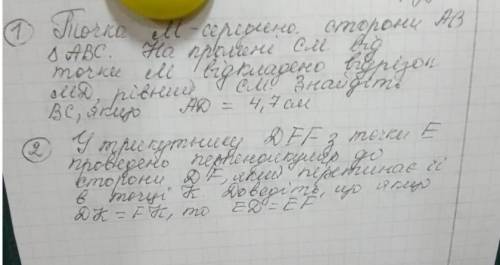 ① Точка М-середина сторони АВ
Δ АВС. На промені СМ від
точки М відкладено відрізок
МД, рівний СМ Знайдіть
ВС, якщо АД = 4,7 см
② У трикутнику DEF з точки Е
проведено перпендикуляр до
сторони DF, який перетинає її
в точці К Доведіть, що якщо
DK = FK, то ED = EF